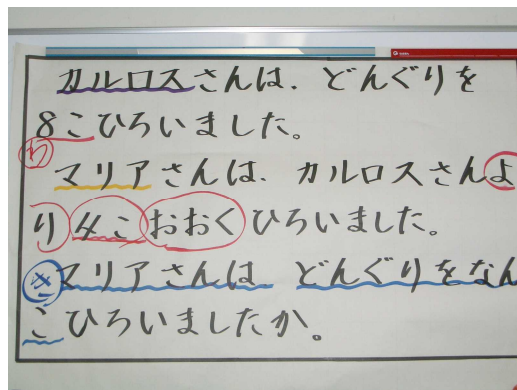 カルロスさんは、どんぐりを
8こひろいました。
わ
マリアさんは、カルロスさんよ
り4こおおくひろいました。
き
マリアさんは どんぐりをなん
こひろいましたか。